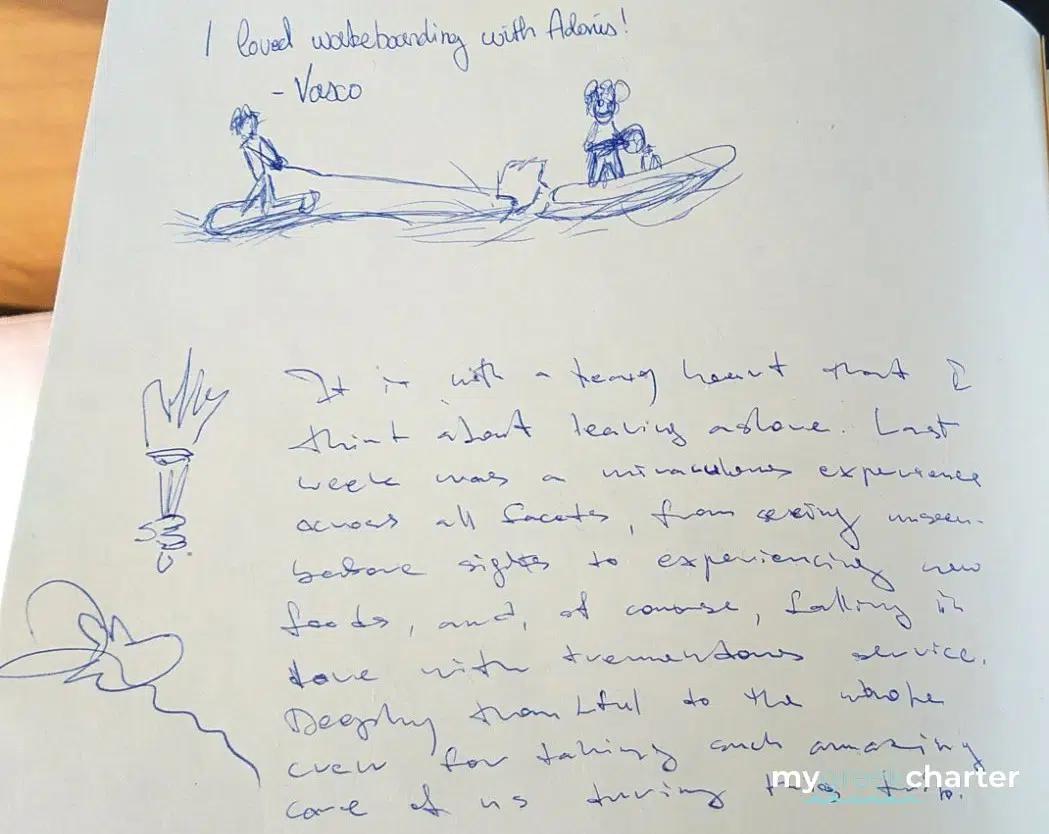 I loved wakeboarding with Adonis!
- Vasco
It is with a heavy heart that I
think about leaving ashore. Last
week was a miraculous experience
across all facets, from seeing unseen-
before sights to experiencing new
foods, and, of course, falling in
love with tremendous service.
Deeply thankful to the whole
crew for taking such amazing
care of us during this trip.
mygreekcharter